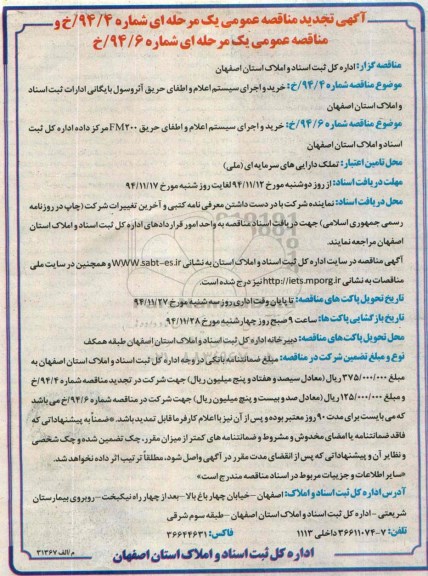 آگهی تجدید مناقصه عمومی یک مرحله ای شماره ۹۴/۴/خ و
مناقصه عمومی یک مرحله ای شماره ۹۴/۶/خ
مناقصه گزار: اداره کل ثبت اسناد و املاک استان اصفهان
موضوع مناقصه شماره ۹۴/۴/خ: خرید و اجرای سیستم اعلام و اطفای حریق آئروسول بایگانی ادارات ثبت اسناد
و املاک استان اصفهان
موضوع مناقصه شماره ۹۴/۶/خ: خرید و اجرای سیستم اعلام و اطفای حریق FM۲۰۰ مرکز داده اداره کل ثبت
اسناد و املاک استان اصفهان
محل تامین اعتبار: تملک دارایی های سرمایه ای (ملی)
مهلت دریافت اسناد: از روز دوشنبه مورخ ۹۴/۱۱/۱۲ لغایت روز شنبه مورخ ۹۴/۱۱/۱۷
محل دریافت اسناد: نماینده شرکت با در دست داشتن معرفی نامه کتبی و آخرین تغییرات شرکت (چاپ در روزنامه
رسمی جمهوری اسلامی) جهت دریافت اسناد مناقصه به واحد امور قراردادهای اداره کل ثبت اسناد و املاک استان
اصفهان مراجعه نمایند.
آگهی مناقصه در سایت اداره کل ثبت اسناد و املاک استان به نشانی WWW.sabt-es.ir و همچنین در سایت ملی
مناقصات به نشانی http://iets.mporg.ir نیز درج شده است.
تاریخ تحویل پاکت های مناقصه: تا پایان وقت اداری روز سه شنبه مورخ ۹۴/۱۱/۲۷
تاریخ بازگشایی پاکت ها: ساعت ۹ صبح روز چهارشنبه مورخ ۹۴/۱۱/۲۸
محل تحویل پاکت های مناقصه: دبیرخانه اداره کل ثبت اسناد و املاک استان اصفهان طبقه همکف
نوع و مبلغ تضمین شرکت در مناقصه: مبلغ ضمانتنامه بانکی در وجه اداره کل ثبت اسناد و املاک استان اصفهان به
مبلغ ۳۷۵/۰۰۰/۰۰۰ ریال (معادل سیصد و هفتاد و پنج میلیون ریال) جهت شرکت در تجدید مناقصه شماره ۹۴/۴/خ
و مبلغ ۱۲۵/۰۰۰/۰۰۰ ریال (معادل صد و بیست و پنج میلیون ریال) جهت شرکت در مناقصه شماره ۹۴/۶/خ می باشد
که می بایست برای مدت ۹۰ روز معتبر بوده و پس از آن نیز با اعلام کارفرما قابل تمدید باشد. *ضمناً به پیشنهاداتی که
فاقد ضمانتنامه یا امضای مخدوش و مشروط و ضمانتنامه های کمتر از میزان مقرر، چک تضمین شده و چک شخصی
و نظایر آن و پیشنهاداتی که پس از انقضای مدت مقرر در آگهی واصل شود، مطلقاً ترتیب اثر داده نخواهد شد.
«سایر اطلاعات و جزییات مربوط در اسناد مناقصه مندرج است»
آدرس اداره کل ثبت اسناد و املاک: اصفهان - خیابان چهارباغ بالا - بعد از چهارراه نیکبخت - روبروی بیمارستان
شریعتی - اداره کل ثبت اسناد و املاک استان اصفهان - طبقه سوم شرقی
تلفن: ۷-۳۶۶۱۱۰۷۴ داخلی ۱۱۱۳ فاکس: ۳۶۶۴۴۶۳۱
اداره کل ثبت اسناد و املاک استان اصفهان
م الف ۳۱۳۶۷